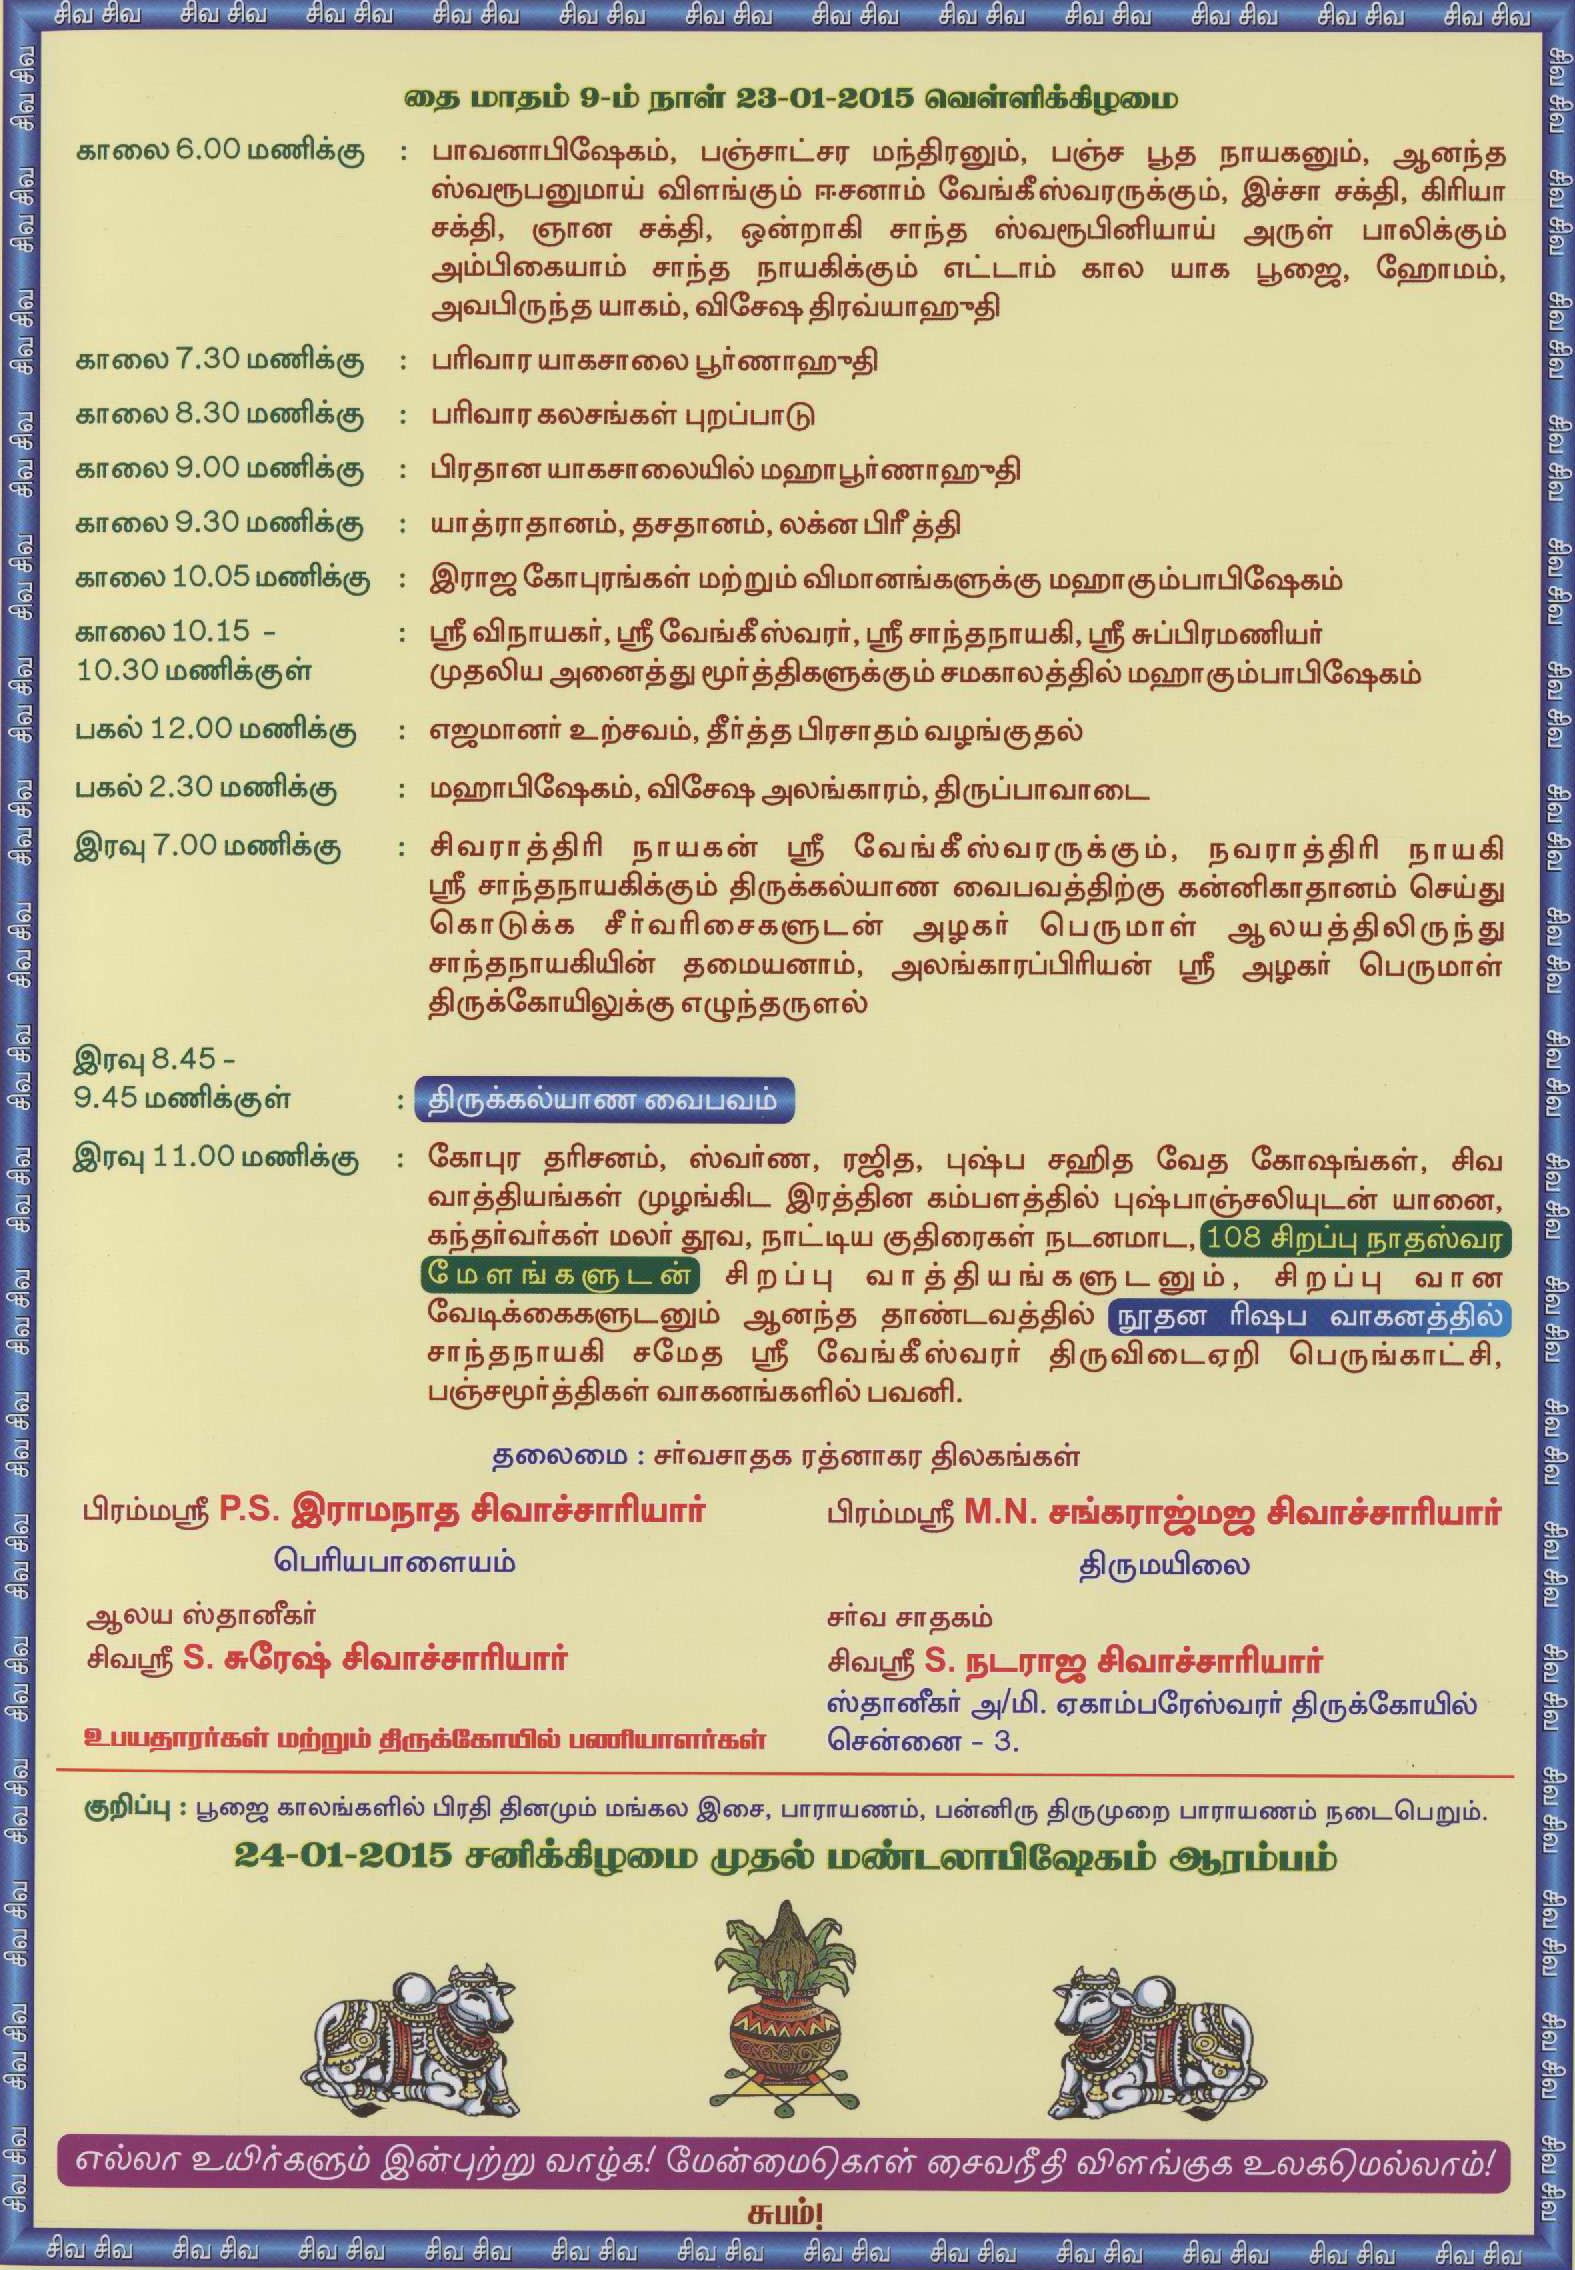 சிவ சிவ சிவ சிவ சிவ சிவ சிவ சிவ சிவ சிவ சிவ சிவ சிவ சிவ சிவ சிவ சிவ சிவ சிவ சிவ சிவ சிவ சிவ சிவ
தை மாதம் 9-ம் நாள் 23-01-2015 வெள்ளிக்கிழமை
காலை 6.00 மணிக்கு : பாவனாபிஷேகம், பஞ்சாட்சர மந்திரனும், பஞ்ச பூத நாயகனும், ஆனந்த
ஸ்வரூபனுமாய் விளங்கும் ஈசனாம் வேங்கீஸ்வரருக்கும், இச்சா சக்தி, கிரியா
சக்தி, ஞான சக்தி, ஒன்றாகி சாந்த ஸ்வரூபினியாய் அருள் பாலிக்கும்
அம்பிகையாம் சாந்த நாயகிக்கும் எட்டாம் கால யாக பூஜை, ஹோமம்,
அவபிருந்த யாகம், விசேஷ திரவ்யாஹுதி
காலை 7.30 மணிக்கு : பரிவார யாகசாலை பூர்ணாஹுதி
காலை 8.30 மணிக்கு : பரிவார கலசங்கள் புறப்பாடு
காலை 9.00 மணிக்கு : பிரதான யாகசாலையில் மஹாபூர்ணாஹுதி
காலை 9.30 மணிக்கு : யாத்ராதானம், தசதானம், லக்ன பிரீத்தி
காலை 10.05 மணிக்கு : இராஜ கோபுரங்கள் மற்றும் விமானங்களுக்கு மஹாகும்பாபிஷேகம்
காலை 10.15 - : ஸ்ரீ விநாயகர், ஸ்ரீ வேங்கீஸ்வரர், ஸ்ரீ சாந்தநாயகி, ஸ்ரீ சுப்பிரமணியர்
10.30 மணிக்குள் முதலிய அனைத்து மூர்த்திகளுக்கும் சமகாலத்தில் மஹாகும்பாபிஷேகம்
பகல் 12.00 மணிக்கு : எஜமானர் உற்சவம், தீர்த்த பிரசாதம் வழங்குதல்
பகல் 2.30 மணிக்கு : மஹாபிஷேகம், விசேஷ அலங்காரம், திருப்பாவாடை
இரவு 7.00 மணிக்கு : சிவராத்திரி நாயகன் ஸ்ரீ வேங்கீஸ்வரருக்கும், நவராத்திரி நாயகி
ஸ்ரீ சாந்தநாயகிக்கும் திருக்கல்யாண வைபவத்திற்கு கன்னிகாதானம் செய்து
கொடுக்க சீர்வரிசைகளுடன் அழகர் பெருமாள் ஆலயத்திலிருந்து
சாந்தநாயகியின் தமையனாம், அலங்காரப்பிரியன் ஸ்ரீ அழகர் பெருமாள்
திருக்கோயிலுக்கு எழுந்தருளல்
இரவு 8.45 -
9.45 மணிக்குள் : திருக்கல்யாண வைபவம்
இரவு 11.00 மணிக்கு : கோபுர தரிசனம், ஸ்வர்ண, ரஜித, புஷ்ப சஹித வேத கோஷங்கள், சிவ
வாத்தியங்கள் முழங்கிட இரத்தின கம்பளத்தில் புஷ்பாஞ்சலியுடன் யானை,
கந்தர்வர்கள் மலர் தூவ, நாட்டிய குதிரைகள் நடனமாட, 108 சிறப்பு நாதஸ்வர
மேளங்களுடன் சிறப்பு வாத்தியங்களுடனும், சிறப்பு வான
வேடிக்கைகளுடனும் ஆனந்த தாண்டவத்தில் நூதன ரிஷப வாகனத்தில்
சாந்தநாயகி சமேத ஸ்ரீ வேங்கீஸ்வரர் திருவிடைஏறி பெருங்காட்சி,
பஞ்சமூர்த்திகள் வாகனங்களில் பவனி.
தலைமை : சர்வசாதக ரத்னாகர திலகங்கள்
பிரம்மஸ்ரீ P.S. இராமநாத சிவாச்சாரியார்
பெரியபாளையம்
பிரம்மஸ்ரீ M.N. சங்கராஜ்மஜ சிவாச்சாரியார்
திருமயிலை
ஆலய ஸ்தானீகர்
சிவஸ்ரீ S. சுரேஷ் சிவாச்சாரியார்
சர்வ சாதகம்
சிவஸ்ரீ S. நடராஜ சிவாச்சாரியார்
ஸ்தானீகர் அ/மி. ஏகாம்பரேஸ்வரர் திருக்கோயில்
சென்னை - 3.
உபயதாரர்கள் மற்றும் திருக்கோயில் பணியாளர்கள்
குறிப்பு : பூஜை காலங்களில் பிரதி தினமும் மங்கல இசை, பாராயணம், பன்னிரு திருமுறை பாராயணம் நடைபெறும்.
24-01-2015 சனிக்கிழமை முதல் மண்டலாபிஷேகம் ஆரம்பம்
எல்லா உயிர்களும் இன்புற்று வாழ்க! மேன்மைகொள் சைவநீதி விளங்குக உலகமெல்லாம்!
சுபம்!
சிவ சிவ சிவ சிவ சிவ சிவ சிவ சிவ சிவ சிவ சிவ சிவ சிவ சிவ சிவ சிவ சிவ சிவ சிவ சிவ சிவ சிவ சிவ சிவ